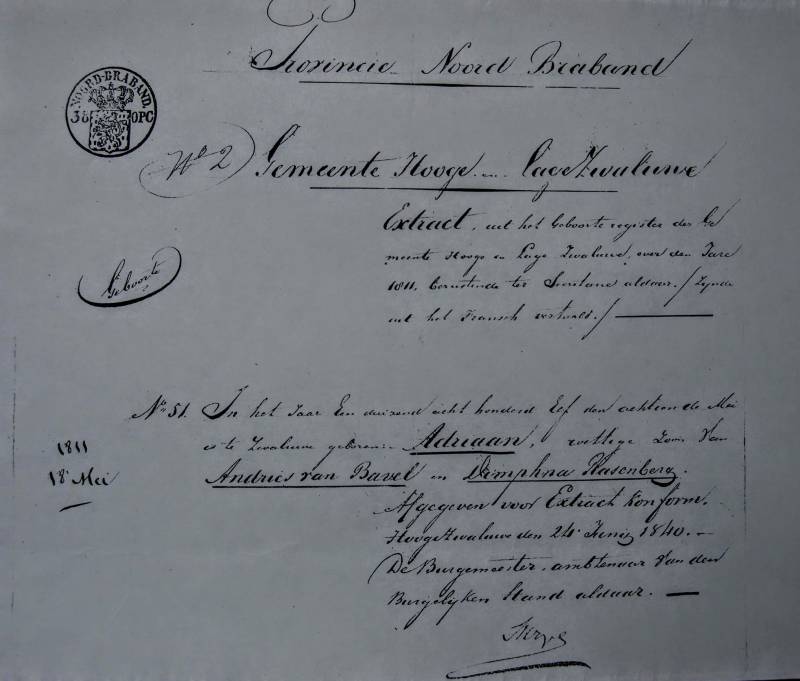 Provincie Noord Braband
NOORD-BRABAND.
38 OPC
No 2
Gemeente Hooge en Lage Zwaluwe
Extract, uit het Geboorte register der Ge
meente Hooge en Lage Zwaluwe, over den Jare
1811, berustende ter Secretarie aldaar./ Zynde
uit het Fransch vertaald./
Geboorte
No 51. In het Jaar Een duizend acht honderd Elf den achtiende Mei
is te Zwaluwe geboren Adriaan, wettige Zoon Van
Andries van Bavel en Dimphna Hasenberg.
1811
18 Mei
Afgegeven voor Extract Konform.
Hooge Zwaluwe den 24 Junij 1840.
De Burgemeester, ambtenaar Van den
Burgelyken Stand aldaar.